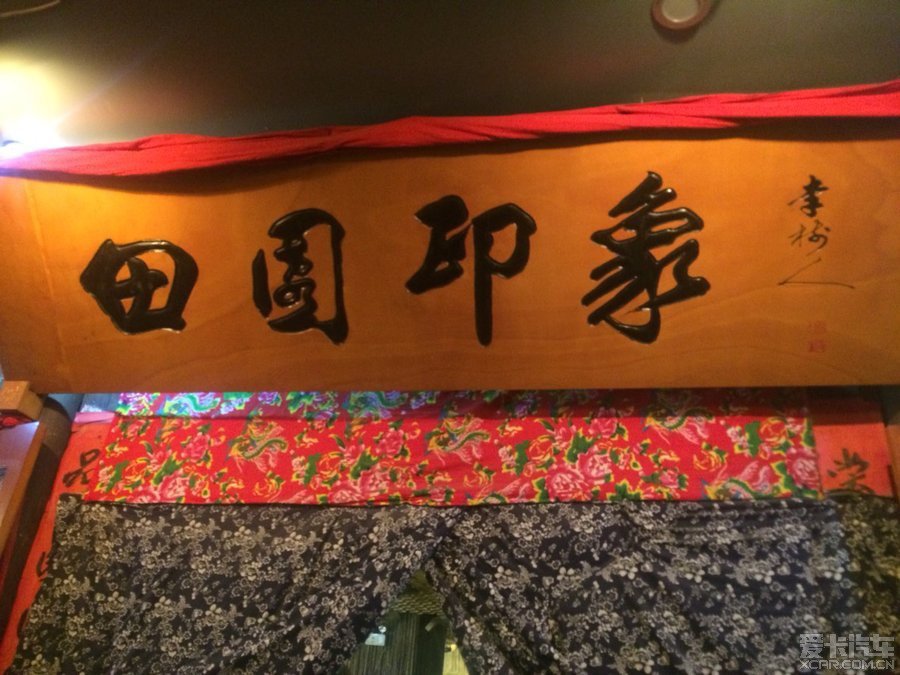 田园印象
李樹人
爱卡汽车
XCAR.COM.CN